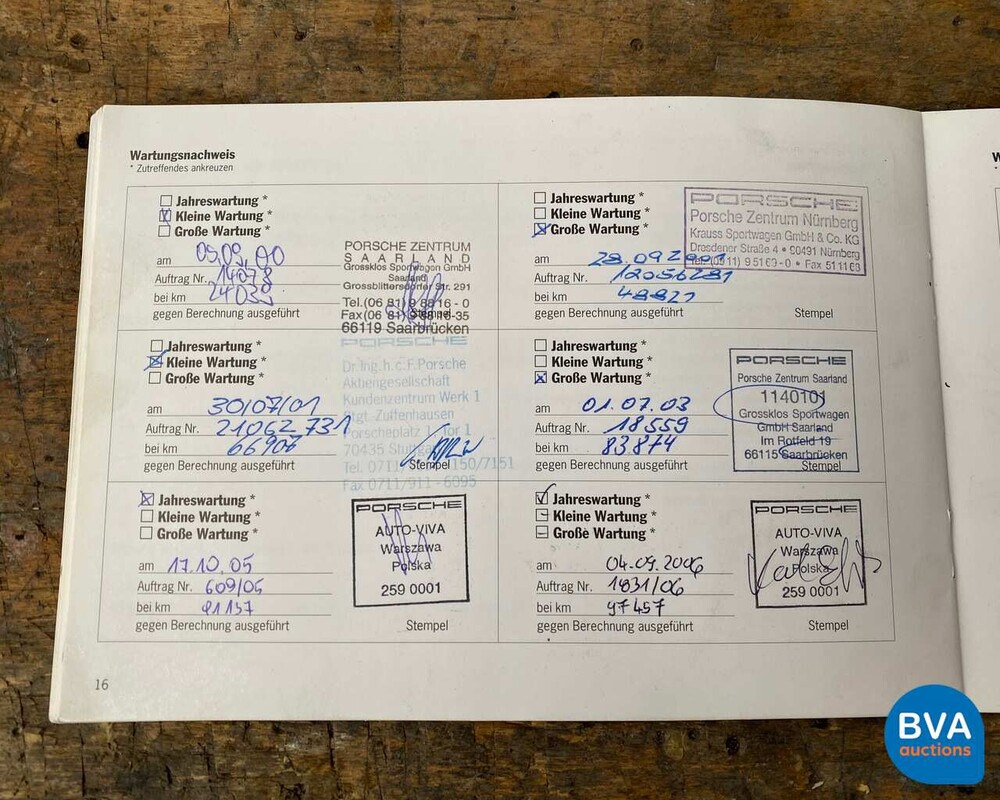 Wartungsnachweis
* Zutreffendes ankreuzen
Jahreswartung *
Kleine Wartung *
Große Wartung *
am 05.09.00
Auftrag Nr. 14078
bei km 24039
gegen Berechnung ausgeführt
PORSCHE ZENTRUM
SAARLAND
Grossklos Sportwagen GmbH
Saarland
Grossblittersdorfer Str. 291
Tel.(06 81) 9 88 16 - 0
Fax (06 81) 9 88 16-35
66119 Saarbrücken
Stempel
Jahreswartung *
Kleine Wartung *
Große Wartung *
am 28.09.2001
Auftrag Nr. 12056281
bei km 48821
gegen Berechnung ausgeführt
PORSCHE
Porsche Zentrum Nürnberg
Krauss Sportwagen GmbH & Co. KG
Dresdener Straße 4 • 90491 Nürnberg
Tel. (0911) 95169-0 • Fax 511163
Stempel
Jahreswartung *
Kleine Wartung *
Große Wartung *
am 30/07/01
Auftrag Nr. 21062731
bei km 66900
gegen Berechnung ausgeführt
PORSCHE
Dr. Ing. h.c. F. Porsche
Aktiengesellschaft
Kundenzentrum Werk 1
Stgt. Zuffenhausen
Porscheplatz 1, Tor 1
70435 Stuttgart
Tel. 0711/ 150/7151
Fax 0711/911 - 6095
Stempel
Jahreswartung *
Kleine Wartung *
Große Wartung *
am 01.07.03
Auftrag Nr. 18559
bei km 83874
gegen Berechnung ausgeführt
PORSCHE
Porsche Zentrum Saarland
1140101
Grossklos Sportwagen
GmbH Saarland
Im Rotfeld 19
66115 Saarbrücken
Stempel
Jahreswartung *
Kleine Wartung *
Große Wartung *
am 17.10.05
Auftrag Nr. 609/05
bei km 91137
gegen Berechnung ausgeführt
PORSCHE
AUTO-VIVA
Warszawa
Polska
259 0001
Stempel
Jahreswartung *
Kleine Wartung *
Große Wartung *
am 04.09.2006
Auftrag Nr. 1831/06
bei km 97457
gegen Berechnung ausgeführt
PORSCHE
AUTO-VIVA
Warszawa
Polska
259 0001
Stempel
16
BVA
auctions